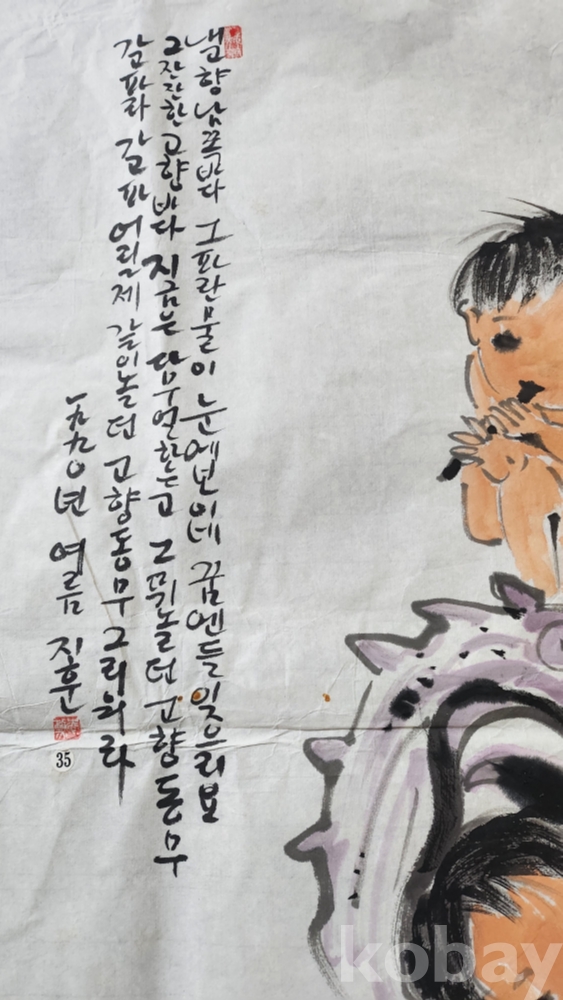 내고향남쪽바다 그파란물이 눈에보이네 꿈엔들잊으리오
그잔잔한고향바다 지금은 다무얼하는고 그뛰놀던고향동무
가고파라 가고파 어릴제 같이놀던 고향동무그리워라
一九九0년 여름 지훈
35
kobay